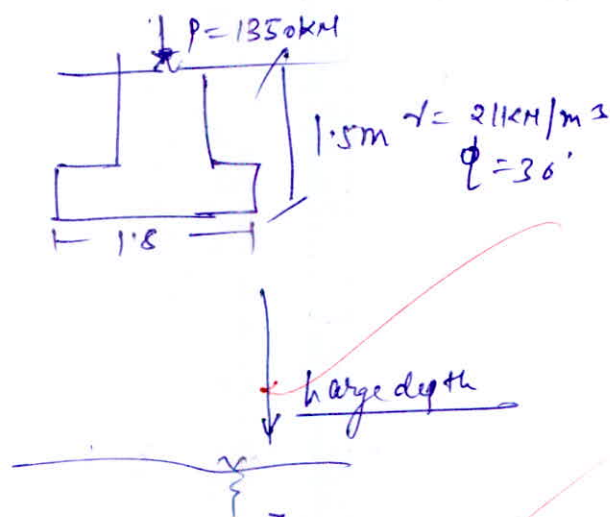 P = 1350KN
1.5m
γ = 21KN/m³
φ = 36°
1.8
Large depth